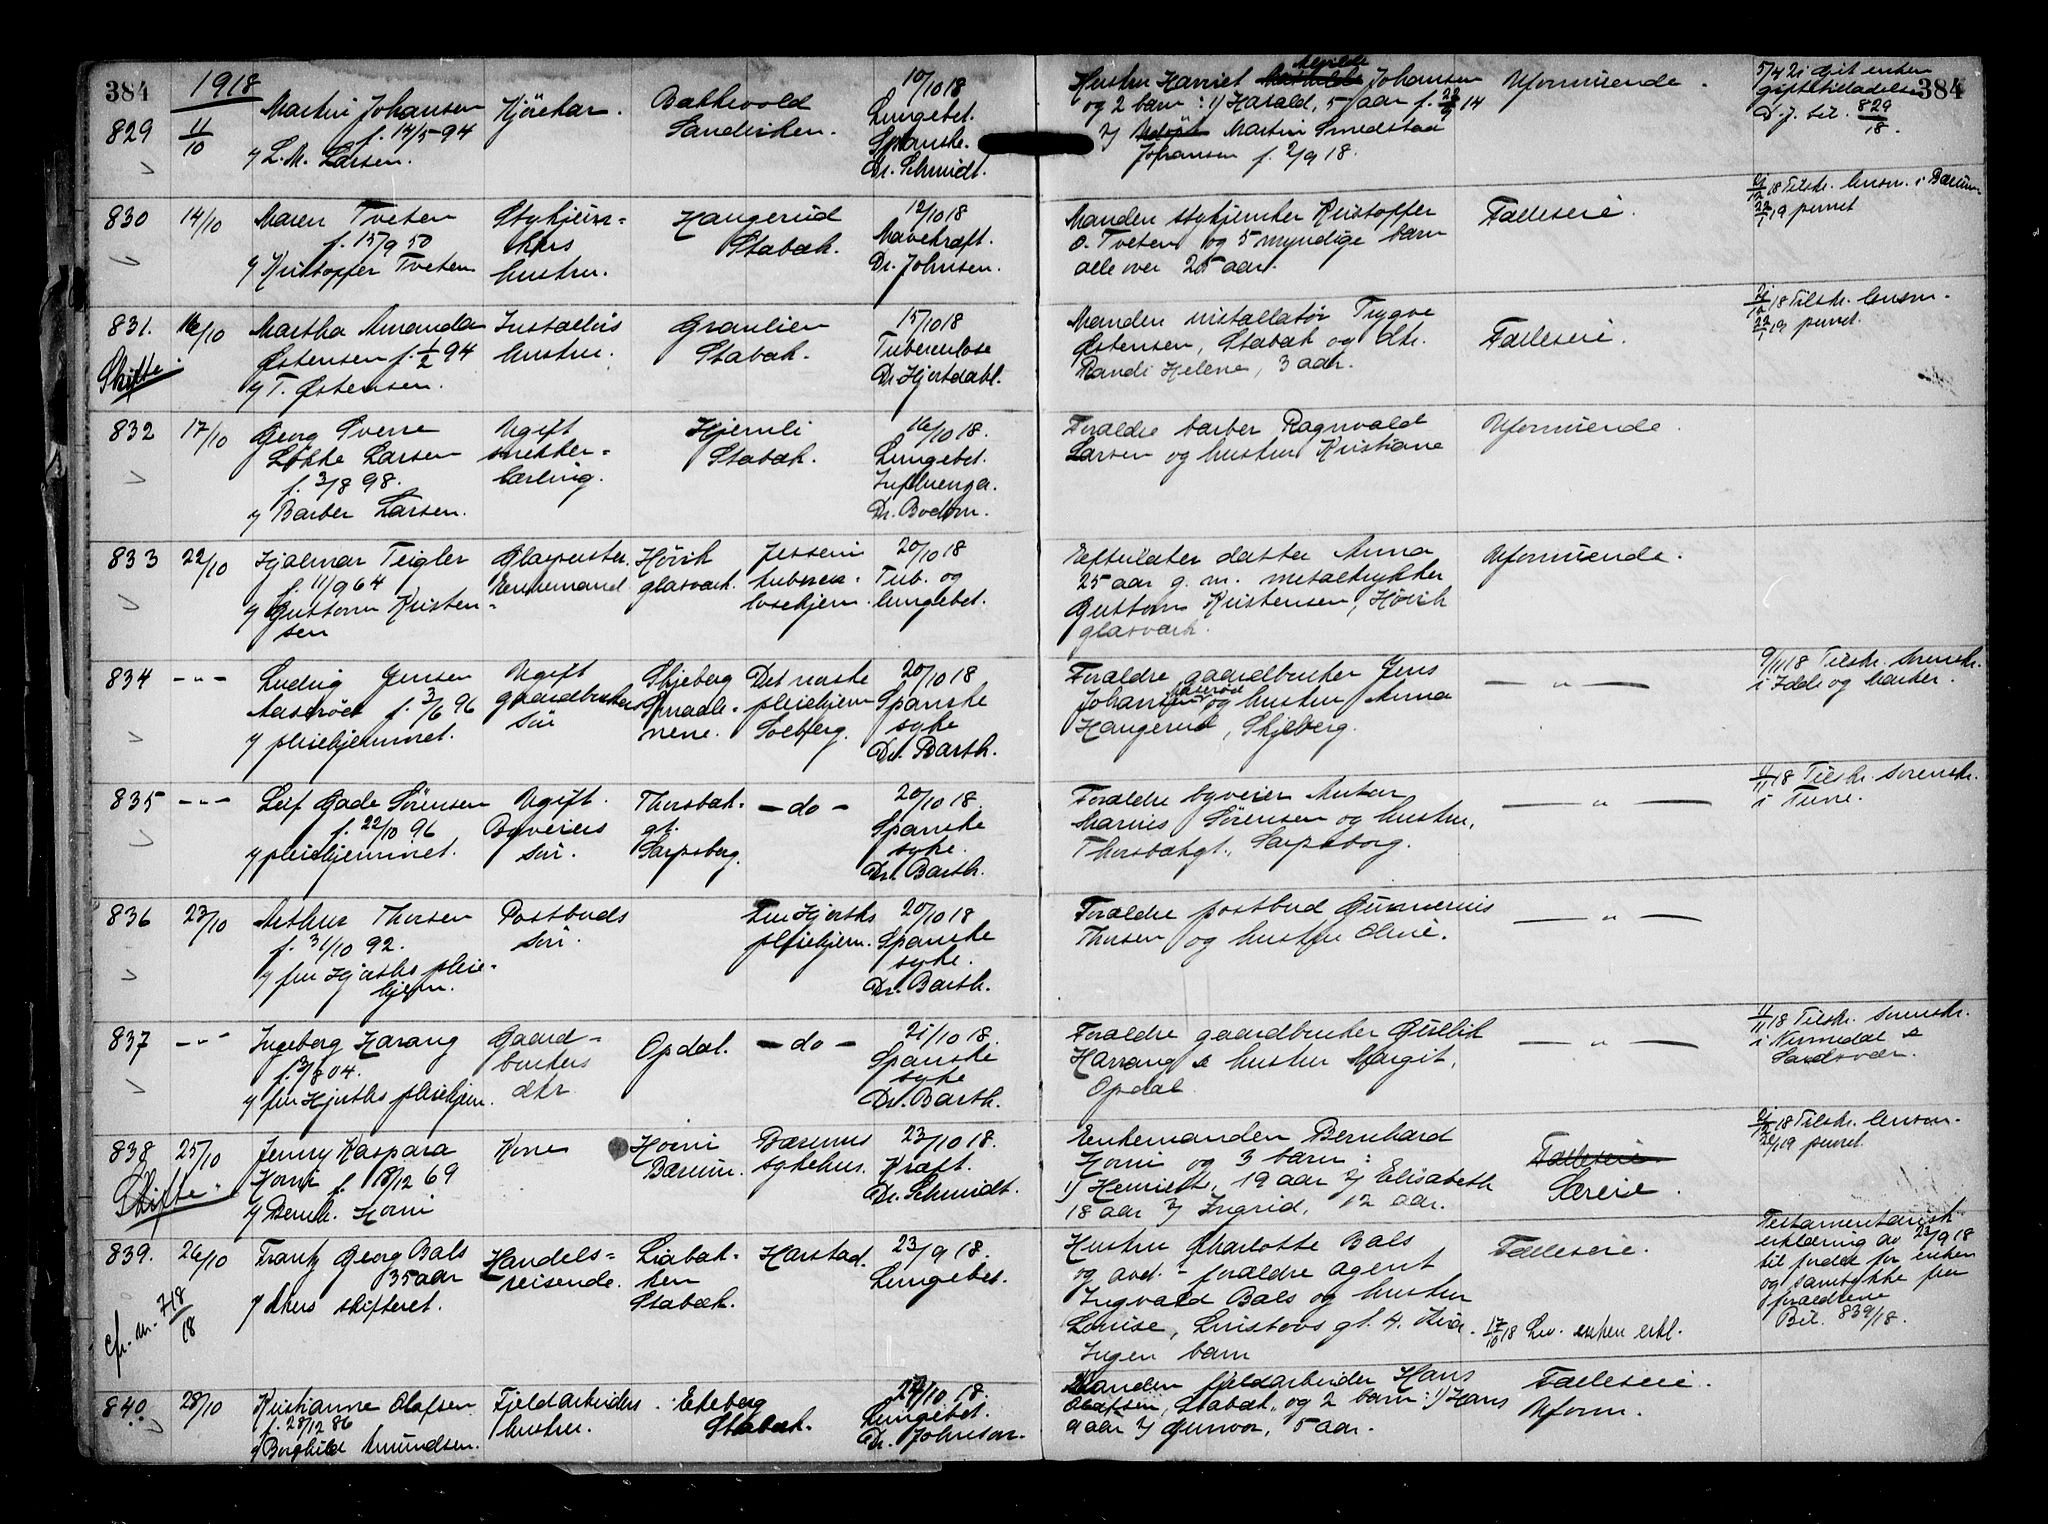 384
1918
829
11/10
Martin Johansen
f. 14/5-94
v/ L. M. Larsen.
Kjørekar.
Bakkevold
Sandviken.
10/10 18
Lungebet.
Spanske.
Dr. Schmidt.
Hustru Harriet Johansen
og 2 barn: 1/ Harald, 5 aar f. 22/9 14
2/ Udøpt Martin Smedstad
Johansen f. 2/9 18.
Uformuende.
384
5/4 21 git enken
giftetilladelse
D. j. bil. 829/18.
830
14/10
Maren Tveten
f. 15/9 50
v/ Kristoffer Tveten
Stykjunkers
hustru.
Haugerud
Stabæk.
12/10 18
Mavekræft.
Dr. Johnsen.
Manden stykjunker Kristoffer
O. Tveten og 5 myndige barn
alle over 25 aar.
Fælleseie.
18 Tilskr. lensm. i Bærum
22/1 19 purret
831.
Skifte
16/10
Martha Amanda
Østensen f. 1/2 94
v/ T. Østensen.
Installørs
hustru.
Granlien
Stabæk.
15/10 18
Tuberculose
Dr. Hjortdahl.
Manden installatør Trygve
Østensen, Stabæk og dtr.
Randi Helene, 3 aar.
Fælleseie.
18 Tilskr. lensm.
22/1 19 purret.
832
17/10
Georg Sverre
Løkke Larsen
f. 3/8 98.
v/ Barber Larsen.
Ugift
snekker-
lærling.
Hjemli
Stabæk.
16/10 18.
Lungebet.
Influenza.
Dr. Bodom.
Forældre barber Ragnvald
Larsen og hustru Kristiane
Uformuende.
833
22/10
Hjalmar Teigler
f. 11/9 64
v/ Guttorm Kristen-
sen
Glaspuster.
Enkemand.
Høvik
glasværk.
Jessem
tubercu-
losehjem.
20/10 18
Tub. og
lungebet.
Efterlater datter Anna
25 aar g. m. metaltrykker
Guttorm Kristensen, Høvik
glasværk.
Uformuende.
834
-"-
Ludvig Jensen
Aaserød f. 3/6 96
v/ pleiehjemmet.
Ugift
gaardbruker
søn
Skjeberg
Smaale-
nene.
Det norske
pleiehjem
Solbjerg.
20/10 18
Spanske
syke
Dr. Barth.
Forældre gaardbruker Jens
Johansen Aaserød og hustru Anna
Haugerud, Skjeberg.
- " -
9/11 18 Tilskr. sorenskr.
i Idde og Marker.
835
-"-
Leif Gade Sørensen
f. 22/10 96
v/ pleiehjemmet.
Ugift.
Byveiers
søn.
Thorsbæk-
gt.
Sarpsborg.
- do -
20/10 18.
Spanske
syke.
Dr. Barth.
Forældre byveier Anton
Marius Sørensen og hustru,
Thorsbækgt., Sarpsborg.
- " -
11 18 Tilskr. sorenskr.
i Tune.
836
23/10
Arthur Thorsen
f. 31/10 92.
v/ fru Hjorths pleie-
hjem.
Postbuds
søn.
Fru Hjorths
pleiehjem.
20/10 18
Spanske
syke.
Dr. Barth.
Forældre postbud Gunnerius
Thorsen og hustru Oline.
- " -
837
-"-
Ingeborg Harang
f. 3/8 04.
v/ fru Hjorths pleiehjem.
Gaard-
brukers
dtr
Opdal.
- do -
21/10 18.
Spanske
syke
Dr. Barth.
Forældre gaardbruker Gullik
Harrang & hustru Margit,
Opdal.
- " -
11/11 18 Tilskr. sorenskr.
i Numedal &
Sandsvær.
838
Skifte
25/10
Jenny Kaspara
Horni f. 13/12 69
v/ Bernh. Horni
Kone
Horni
Bærum.
Bærums
sykehus.
23/10 18.
Kræft.
Dr. Schmidt.
Enkemanden Bernhard
Horni og 3 barn:
1/ Henriette, 19 aar 2/ Elisabeth
18 aar 3/ Ingrid, 12 aar.
Fælleseie
Særeie.
18 Tilskr. lensm.
19 purret
839.
cfr. nr. 718/18
26/10
Frantz Georg Bals
35 aar
v/ Akers skifteret.
Handels-
reisende.
Liabak-
ken
Stabæk.
Harstad.
23/9 18.
Lungebet.
Hustru Charlotte Bals
og avd. - forældre agent
Ingvald Bals og hustru
Louise, gt. 4. Kra.
Ingen barn
Fælleseie.
17/10 18 Lev. enken erkl.
Testamentarisk
erklæring av 23/9 18
til fordel for enken
og samtykke fra
forældrene
Bil. 839/18.
840
28/10
Kristianne Olafsen
f. 28/12 86
v/ Borghild Amundsen.
Fjeldarbeiders
hustru.
Ekeberg
Stabæk.
27/10 18.
Lungebet.
Dr. Johnson.
Manden fjeldarbeider Hans
Olafsen, Stabæk, og 2 barn: 1/ Hans
9 aar 2/ Gunvor, 5 aar.
Fælleseie.
Uform.